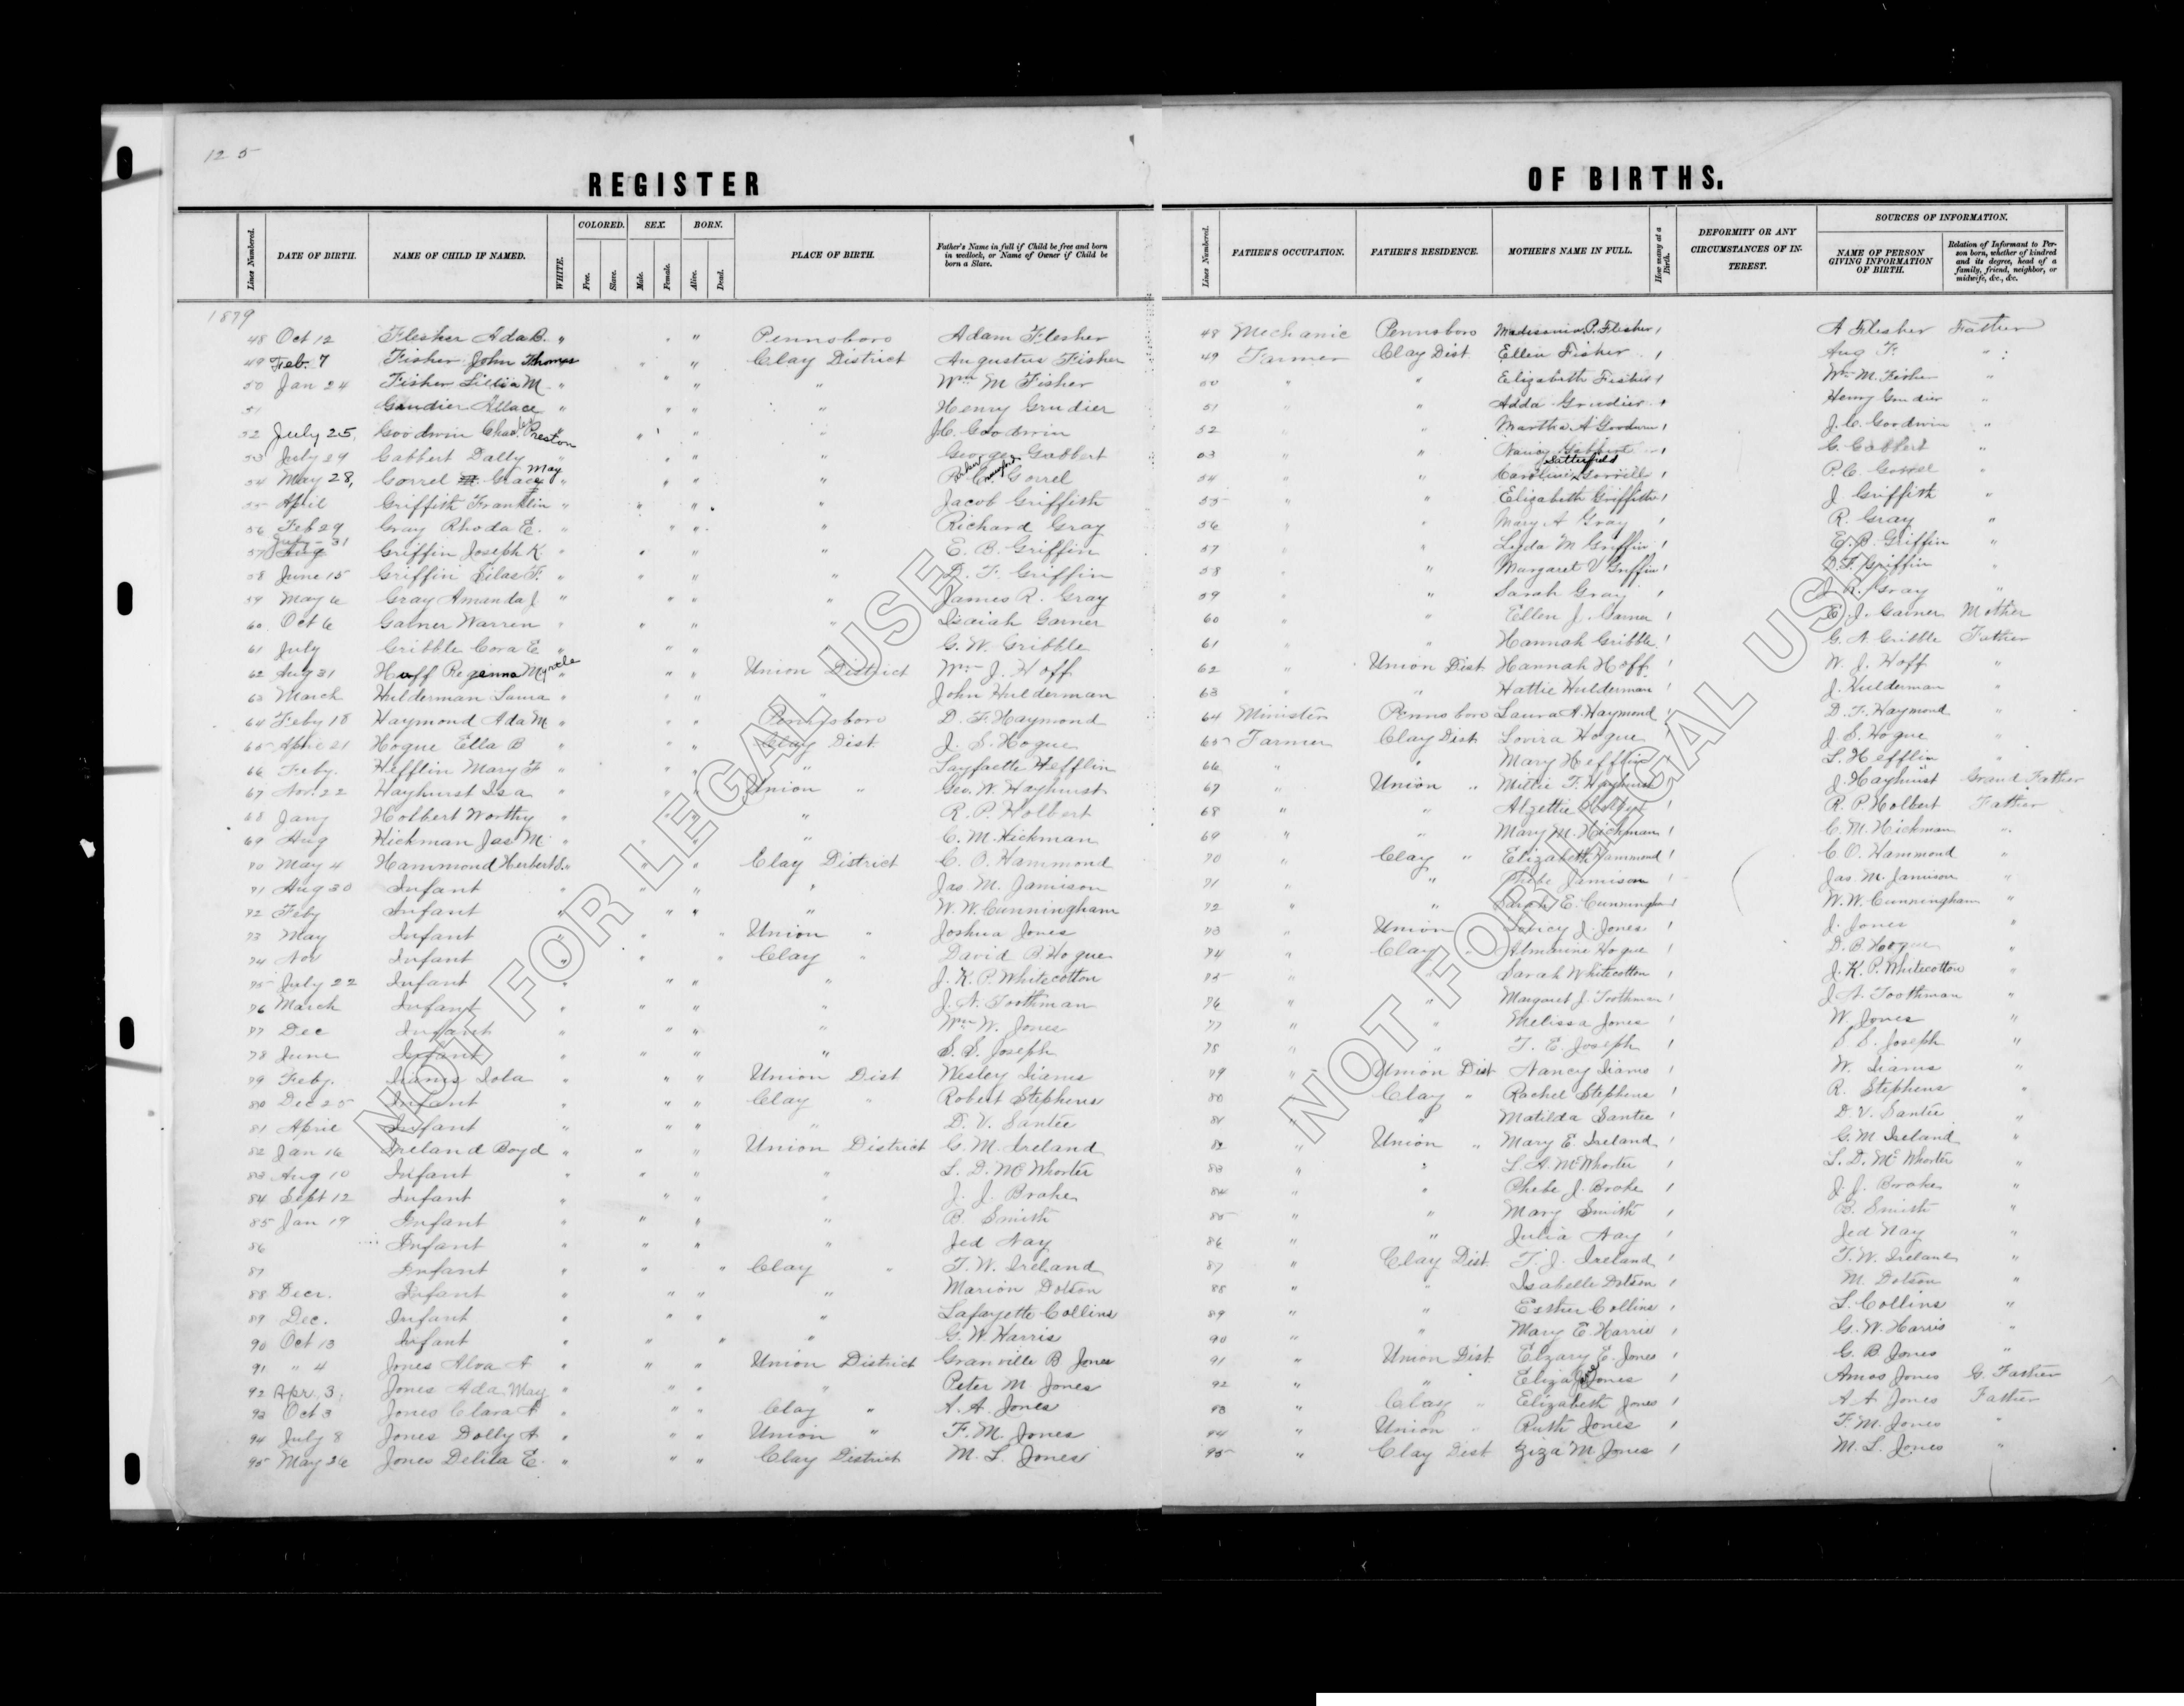 12 5
REGISTER OF BIRTHS.
Lines Numbered. DATE OF BIRTH. NAME OF CHILD IF NAMED. WHITE. COLORED. Free. Slave. SEX. Male. Female. BORN. Alive. Dead. PLACE OF BIRTH. Father's Name in full if Child be free and born in wedlock, or Name of Owner if Child be born a Slave. Lines Numbered. FATHER'S OCCUPATION. FATHER'S RESIDENCE. MOTHER'S NAME IN FULL. How many at a Birth. DEFORMITY OR ANY CIRCUMSTANCES OF INTEREST. SOURCES OF INFORMATION. NAME OF PERSON GIVING INFORMATION OF BIRTH. Relation of Informant to Person born, whether of kindred and its degree, head of a family, friend, neighbor, or midwife, &c., &c.
1879
48 Oct 12 Flesher Ada B. " " " Pennsboro Adam Flesher 48 Mechanic Pennsboro P. Flesher 1 A Flesher Father
49 Feb. 7 Fisher John Thomas " " Clay District Augustus Fisher 49 Farmer Clay Dist. Ellen Fisher 1 Aug F. "
50 Jan 24 Fisher Lillia M. " " " " Wm M Fisher 50 " " Elizabeth Fisher 1 Wm M. Fisher "
51 " " " " Henry Grudier 51 " " Adda Grudier 1 Henry Grudier "
52 July 25, Goodwin Chas Preston " " " " J.C. Goodwin 52 " " Martha A Goodwin 1 J. C. Goodwin "
53 July 29 Gabbert Dally " " " " George Gabbert 53 " " Nancy Gabbert 1 G. Gabbert "
54 May 28, Gorrel Gracy May " " " " Gorrel 54 " " Caroline Satterfield Gorrell 1 P. C. Gorrel "
55 April Griffith Franklin " " " " Jacob Griffith 55 " " Elizabeth Griffith 1 J Griffith "
56 Feb 29 Gray Rhoda E. " " " " Richard Gray 56 " " Mary A Gray 1 R. Gray "
57 July 31 Griffin Joseph K. " " " " E. B. Griffin 57 " " Lyda M Griffin 1 E. B. Griffin "
58 June 15 Griffin Silas F. " " " " D. F. Griffin 58 " " Margaret V Griffin 1 D. F. Griffin "
59 May 6 Gray Amanda J. " " " " James R. Gray 59 " " Sarah Gray 1 J. R. Gray "
60 Oct 6 Garner Warren " " " " Isaiah Garner 60 " " Ellen J. Garner 1 E. J. Garner Mother
61 July Gribble Cora E. " " " " G. W. Gribble 61 " " Hannah Gribble 1 Gribble Father
62 Aug 31 Hoff Regenna Myrtle " " " Union District Wm J. Hoff 62 " Union Dist Hannah Hoff 1 W. J. Hoff "
63 March Hulderman Laura " " " " John Hulderman 63 " " Hattie Hulderman 1 J. Hulderman "
64 Feby 18 Haymond Ada M. " " " Pennsboro D. F. Haymond 64 Minister Pennsboro Laura A. Haymond 1 D. F. Haymond "
65 April 21 Hogue Ella B " " " Clay Dist. J. S. Hogue 65 Farmer Clay Dist Lovira Hogue 1 J. S. Hogue "
66 Feby. Hefflin Mary F " " " " Layfaette Hefflin 66 " " Mary Hefflin L. Hefflin "
67 Nov. 22 Hayhurst Isa " " " Union " Geo. W. Hayhurst 67 " Union " Millie F. Hayhurst J. Hayhurst Grand Father
68 Jany Holbert Worthy " " " " R. P. Holbert 68 " " Holbert 1 R. P. Holbert Father
69 Aug Hickman Jas M. " " " " C. M. Hickman 69 " " Mary M. Hickman 1 C. M. Hickman "
70 May 4 Hammond Herbert S. " " " Clay District C. O. Hammond 70 " Clay " Elizabeth Hammond 1 C. O. Hammond "
71 Aug 30 Infant " " " " Jas M. Jamison 71 " " Phebe Jamison 1 Jas. M. Jamison "
72 Feby Infant " " " " W. W. Cunningham 72 " " Sarah E. Cunningham 1 W. W. Cunningham "
73 May Infant " " " Union " Joshua Jones 73 " Union Nancy J. Jones 1 J. Jones "
74 Nov Infant " " " Clay " David B. Hogue 74 " Clay " Almarine Hogue 1 D. B Hogue "
75 July 22 Infant " " " " J. K. P. Whitecotton 75 " " Sarah Whitecotton 1 J. K. P. Whitecotton "
76 March Infant " " " " J. A. Toothman 76 " " Margaret J. Toothman 1 J A. Toothman "
77 Dec Infant " " " " Wm W. Jones 77 " " Melissa Jones 1 W. Jones "
78 June Infant " " " " S. S. Joseph 78 " " T. E. Joseph 1 S. S. Joseph "
79 Feby. Iiams Iola " " " Union Dist Wesley Iiams 79 " Union Dist Nancy Iiams 1 W. Iiams "
80 Dec 25 Infant " " " Clay " Robert Stephens 80 " Clay " Rachel Stephens 1 R. Stephens "
81 April Infant " " " " D. V. Santee 81 " " Matilda Santee 1 D. V. Santee "
82 Jan 16 Ireland Boyd " " " Union District G. M. Ireland 82 " Union " Mary E. Ireland 1 G. M Ireland "
83 Aug 10 Infant " " " " L. D. McWhorter 83 " " L. A. McWhorter 1 L. D. McWhorter "
84 Sept 12 Infant " " " " J. J. Brake 84 " " Phebe J. Brake 1 J. J. Brake "
85 Jan 19 Infant " " " " B. Smith 85 " " Mary Smith 1 B. Smith "
86 Infant " " " " Jed Nay 86 " " Julia Nay 1 Jed Nay "
87 Infant " " " Clay " T. W. Ireland 87 " Clay Dist. T. J. Ireland 1 T. W. Ireland "
88 Decr. Infant " " " " Marion Dotson 88 " " Isabelle Dotson 1 M. Dotson "
89 Dec. Infant " " " " Lafayette Collins 89 " " Esther Collins 1 L. Collins "
90 Oct 13 Infant " " " " G. W. Harris 90 " " Mary E. Harris 1 G. W. Harris "
91 " 4 Jones Alva A " " " Union District Granville B Jones 91 " Union Dist. Elzary E. Jones 1 G. B Jones "
92 Apr. 3, Jones Ada May " " " " Peter M Jones 92 " " Eliza Jane Jones 1 Amos Jones G. Father
93 Oct 3 Jones Clara A " " " Clay " A. A. Jones 93 " Clay " Elizabeth Jones 1 A A. Jones Father
94 July 8 Jones Dolly A " " " Union " F. M. Jones 94 " Union " Ruth Jones 1 F. M. Jones "
95 May 26 Jones Delila E. " " " Clay District M. L. Jones 95 " Clay Dist Eliza M Jones 1 M. L. Jones "
NOT FOR LEGAL USE
NOT FOR LEGAL USE